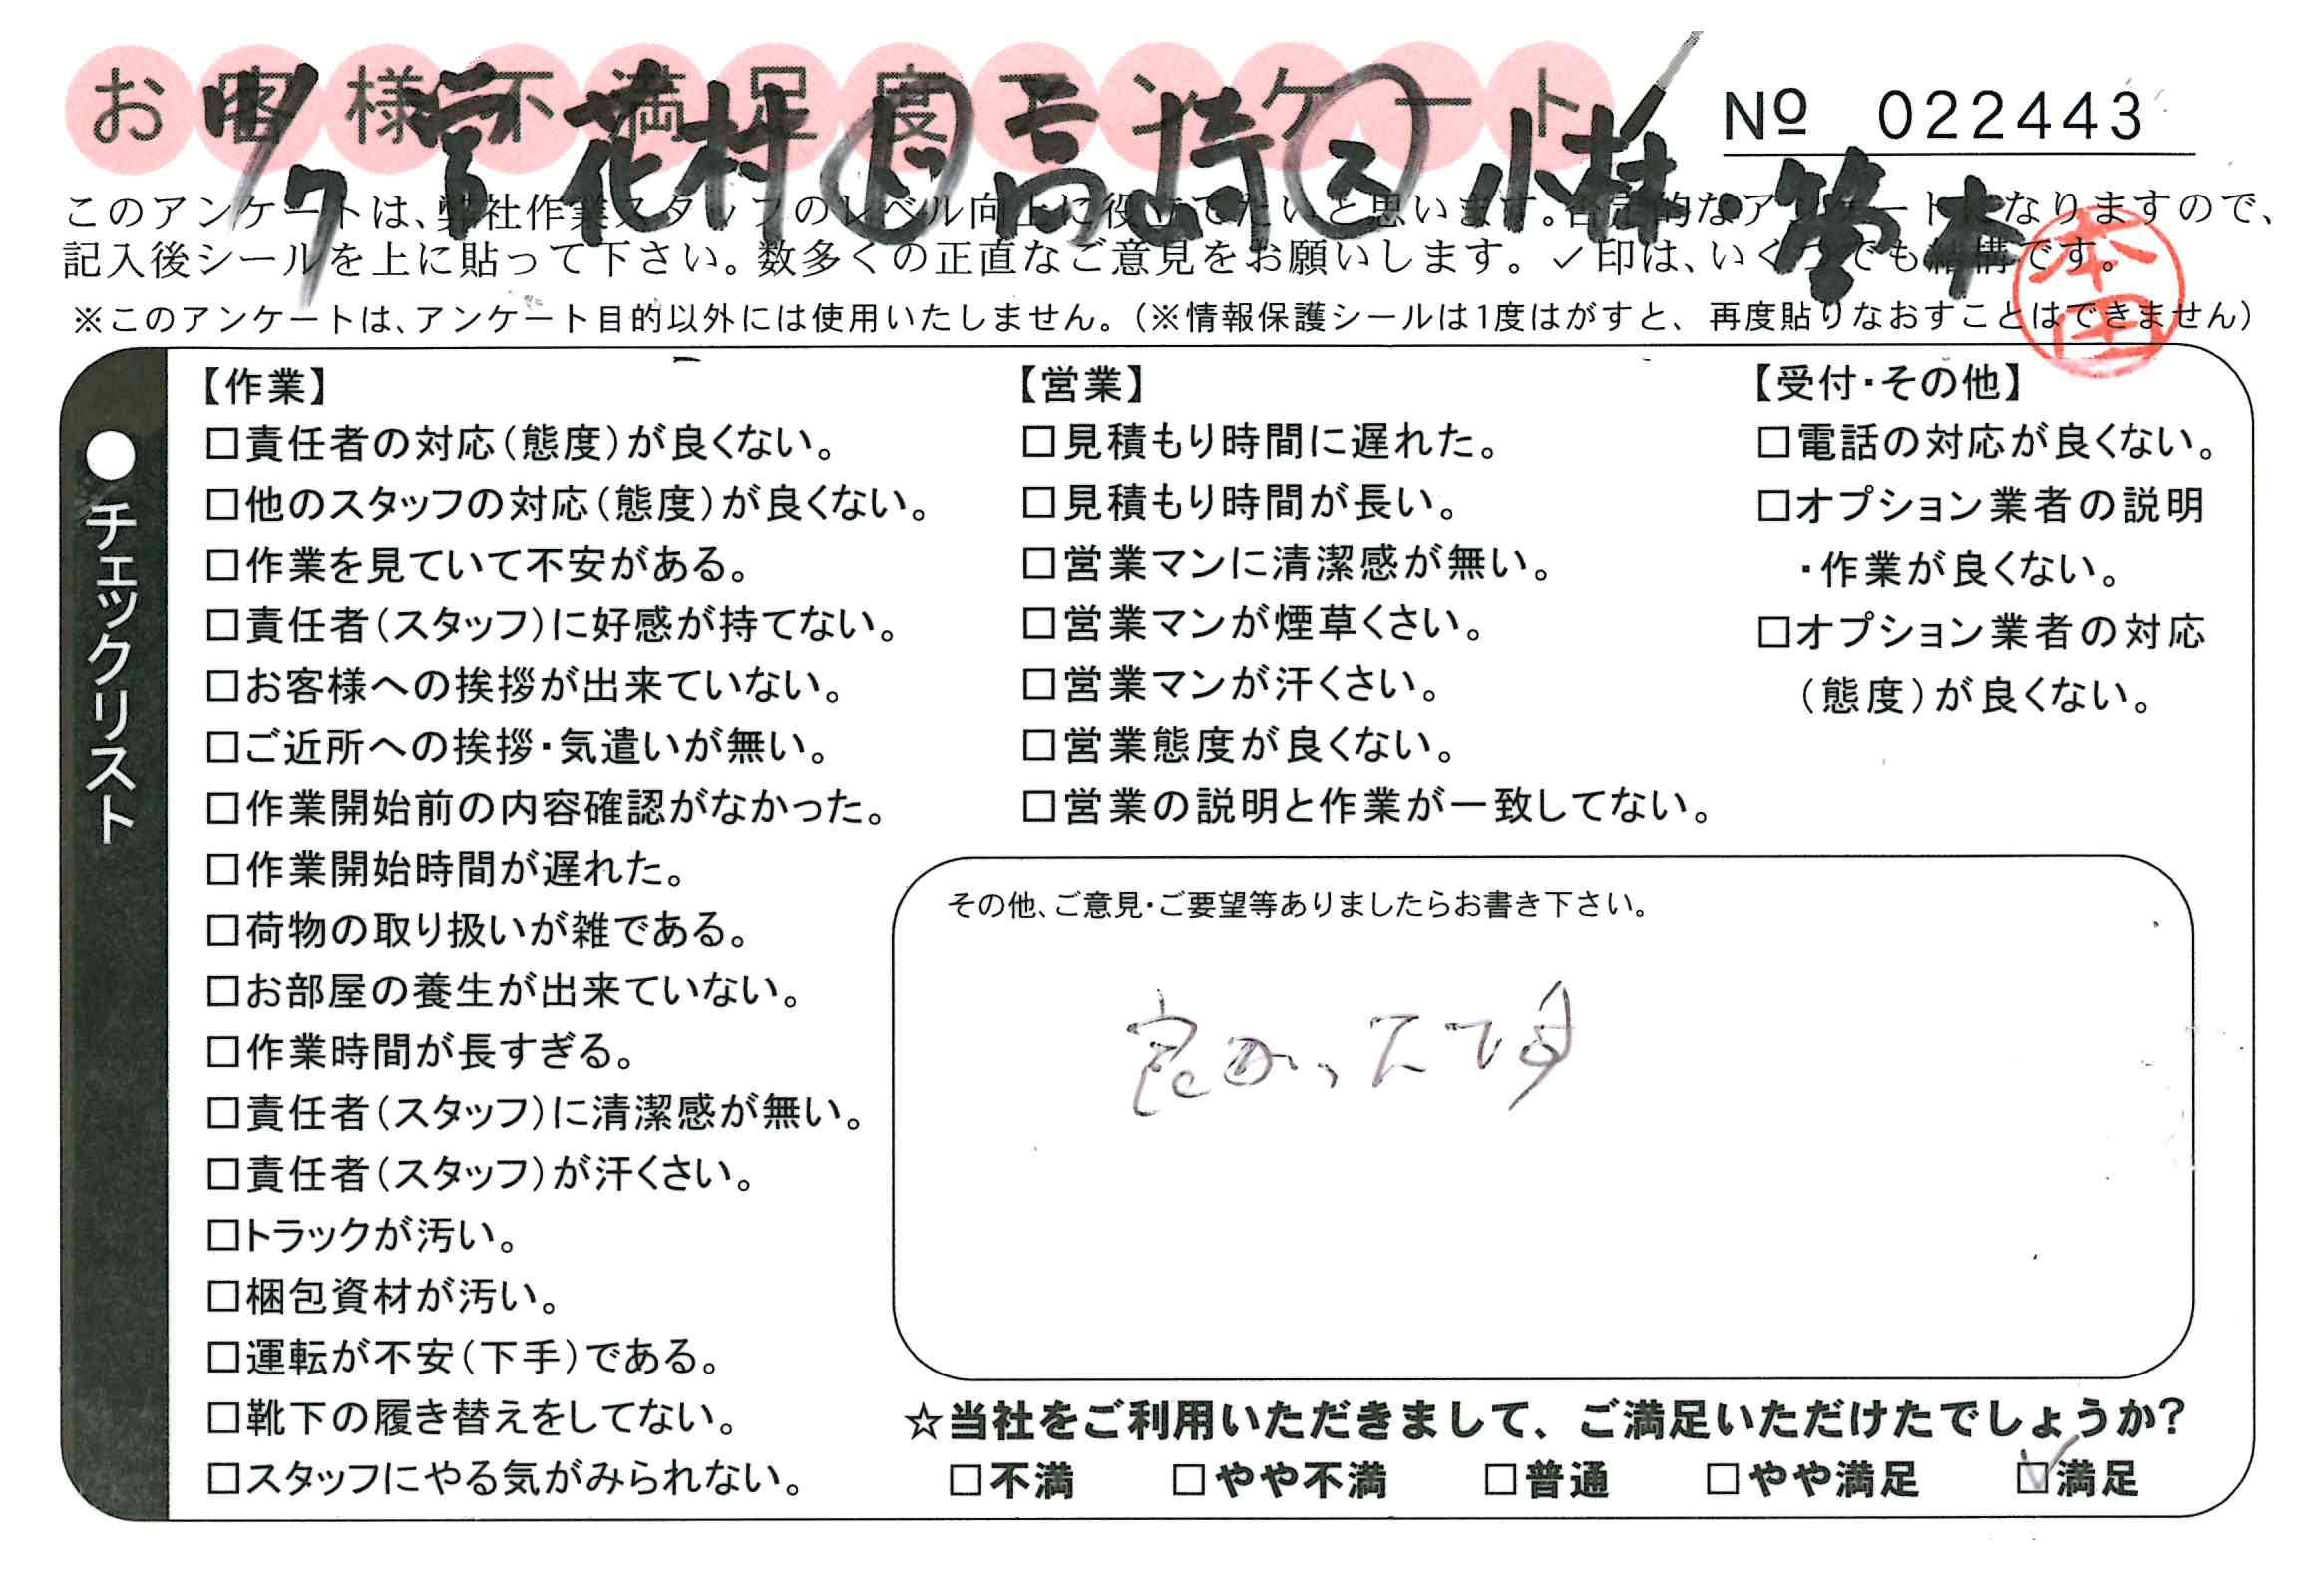 お客様不満足度アンケート
№ 022443
花村 ド 高崎 ス 小林・管本
このアンケートは、弊社作業スタッフのレベル向上に役立てたいと思います。合目的なアンケートになりますので、
記入後シールを上に貼って下さい。数多くの正直なご意見をお願いします。✓印は、いくつでも結構です。
本田
※このアンケートは、アンケート目的以外には使用いたしません。（※情報保護シールは1度はがすと、再度貼りなおすことはできません）
●チェックリスト
【作業】
□責任者の対応（態度）が良くない。
□他のスタッフの対応（態度）が良くない。
□作業を見ていて不安がある。
□責任者（スタッフ）に好感が持てない。
□お客様への挨拶が出来ていない。
□ご近所への挨拶・気遣いが無い。
□作業開始前の内容確認がなかった。
□作業開始時間が遅れた。
□荷物の取り扱いが雑である。
□お部屋の養生が出来ていない。
□作業時間が長すぎる。
□責任者（スタッフ）に清潔感が無い。
□責任者（スタッフ）が汗くさい。
□トラックが汚い。
□梱包資材が汚い。
□運転が不安（下手）である。
□靴下の履き替えをしてない。
□スタッフにやる気がみられない。
【営業】
□見積もり時間に遅れた。
□見積もり時間が長い。
□営業マンに清潔感が無い。
□営業マンが煙草くさい。
□営業マンが汗くさい。
□営業態度が良くない。
□営業の説明と作業が一致してない。
【受付・その他】
□電話の対応が良くない。
□オプション業者の説明
・作業が良くない。
□オプション業者の対応
（態度）が良くない。
その他、ご意見・ご要望等ありましたらお書き下さい。
良かったです
☆当社をご利用いただきまして、ご満足いただけたでしょうか？
□不満 □やや不満 □普通 □やや満足 ☑満足